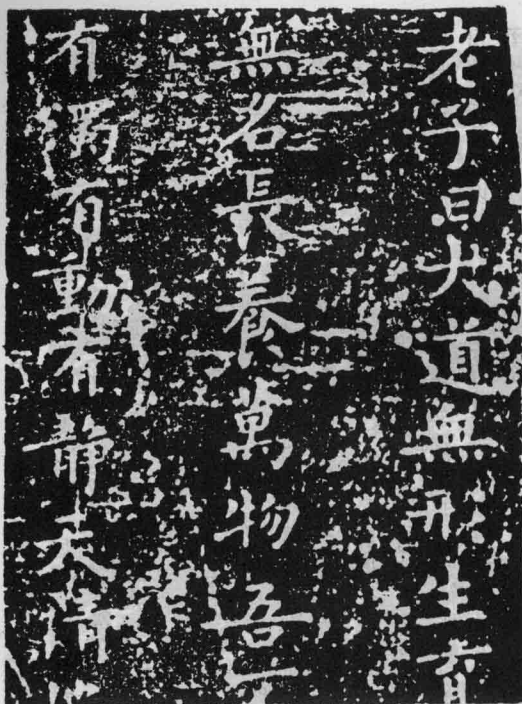 老子曰大道無形生育
無名長養萬物吾
有濁有動有静天清